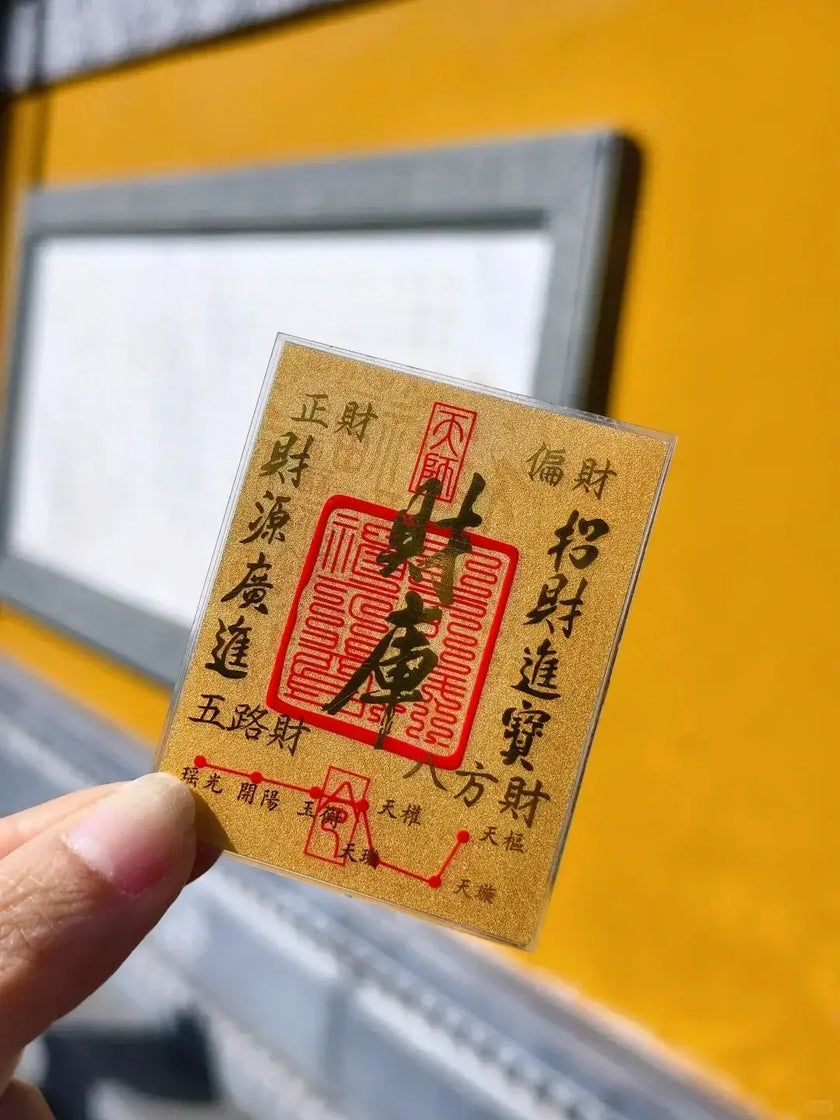 正財
天師
偏財
財源廣進
財庫
招財進寶
五路財
八方財
瑤光
開陽
玉衡
天權
天璣
天樞
天璇